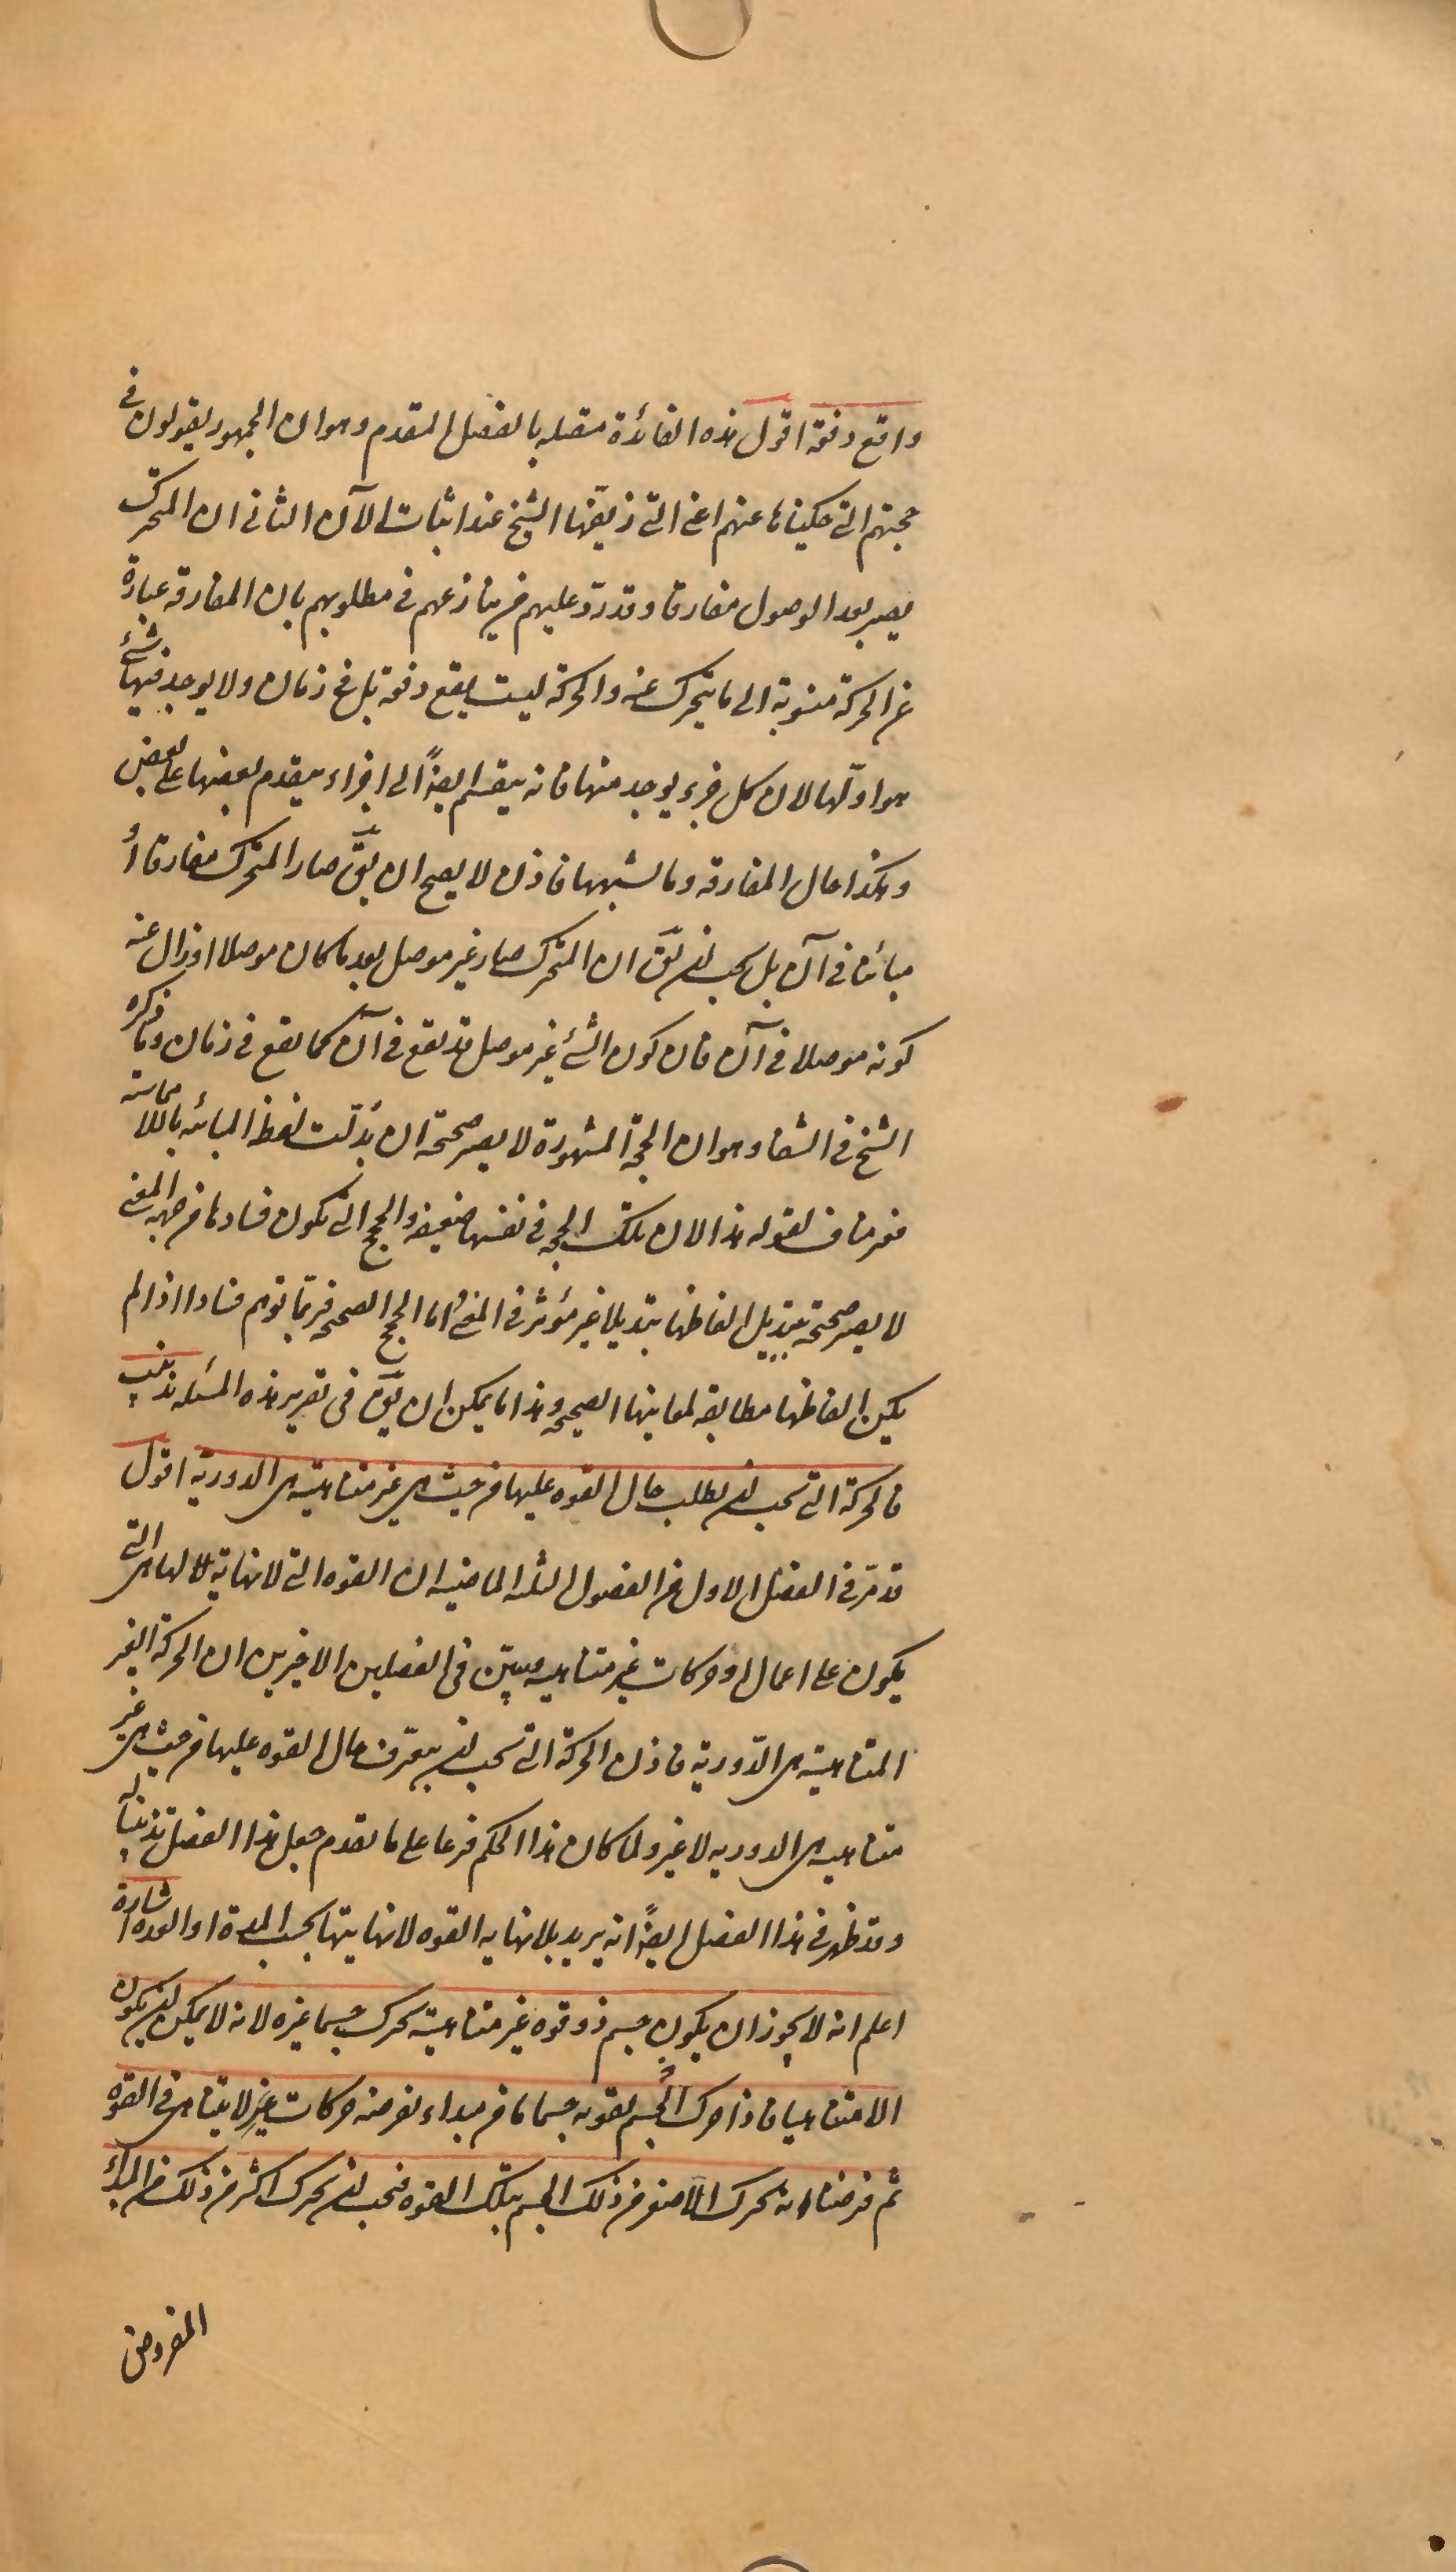 واقع دفعة اقول هذه الفائدة متصله بالفصل المتقدم وهو ان الجمهور يقولون فى
حجتهم التى حكيناها عنهم اعنى التى زيّفها الشيخ عند اثبات الآن الثانى ان المتحرك
يصير بعد الوصول مفارقا وقد ردّ عليهم من ينازعهم فى مطلوبهم بان المفارقه عبارة
عن الحركة منسوبة الى ما يتحرك عنه والحركة ليست يقع دفعة بل فى زمان ولا يوجد فيها شئ
هو اوّلها لان كل جزء يوجد منها فانه ينقسم ايضاً الى اجزاء يتقدم بعضها على بعض
وهكذا حال المفارقه وما يشبهها فاذن لا يصح ان يقَ صار المتحرك مفارقا أ
مبائنا فى آن بل يجب ان يقَ ان المتحرك صار غير موصل بعد ما كان موصلا او زال عنه
كونه موصلا فى آن فان كون الشئ غير موصل قد يقع فى آن كما يقع فى زمان وما ذكره
الشيخ فى الشفا وهو ان الحجة المشهورة لا يصير صحيحة ان بُدّلت لفظ المبائنه باللا مماسه
فغير مناف لقوله هذا لان تلك الحجه فى نفسها ضعيفة والحجج التى تكون فسادها من جهه المعنى
لا يصير صحيحة بتبديل الفاظها تبديلا غير مؤثر فى المعنى واما الحجج الصحيحه فربّما توهم فسادا اذا لم
يكن الفاظها مطابقه لمعانيها الصحيحه وهذا ما يمكن ان يقَ فى تقرير هذه المسئله تذنيب
فالحركة التى يجب ان يطلب حال القوه عليها من حيث هى غير متناهيته هى الدورية اقول
قد مرّ فى الفصل الاول من الفصول الثلثه الماضيه ان القوه التى لا نهاية لها هى التى
يكون على اعمال او حركات غير متناهيه وبيّن فى الفصلين الاخيرين ان الحركة الغير
المتناهيته هى الدّورية فاذن الحركة التى يجب ان يتعرّف حال القوه عليها من حيث هى غير
متناهيه هى الدوريه لا غير ولما كان هذا الحكم فرعا على ما تقدم جعل هذا الفصل تذنيبا له
وقد ظهر فى هذا الفصل ايضاً انه يريد بلانهايه القوه لا نهايتها بحسب المدة او العده اشارة
اعلم انه لا يجوز ان يكون جسم ذو قوه غير متناهيته يحرك جسما غيره لانه لا يمكن ان يكون
الا متناهيا فاذا حرك الجسم بقوته جسما ما من مبداء نفرضه حركات غير لا يتناهى فى القوه
ثم فرضنا انه يحرك الاصغر من ذلك الجسم بتلك القوه فيجب ان يحرك اكثر من ذلك من المبدأ
المفروض